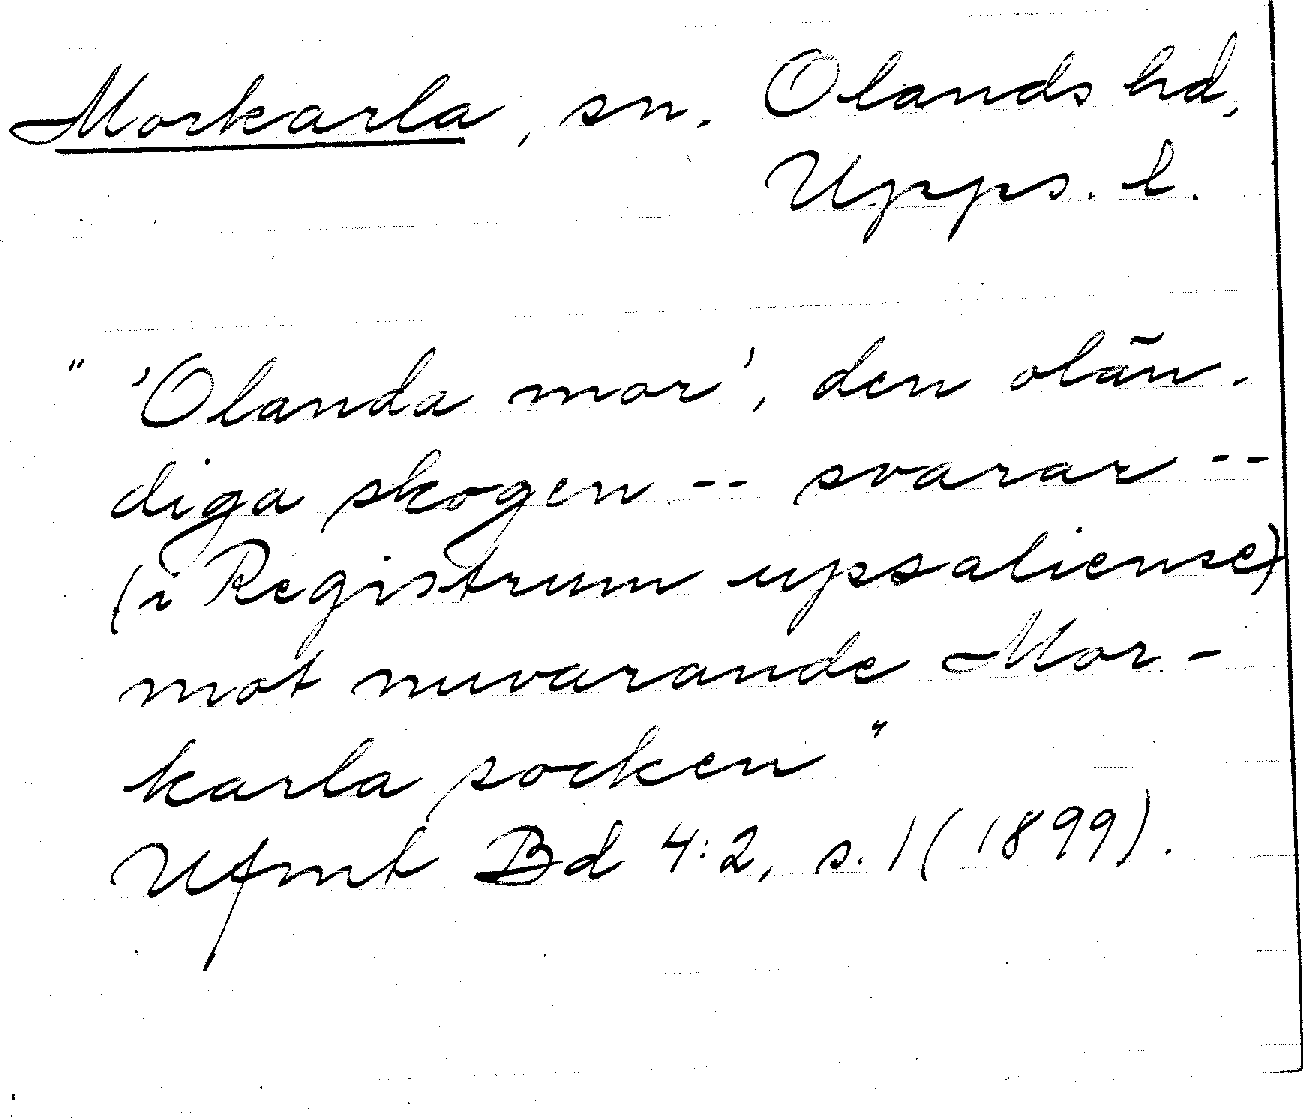 Morkarla, sn. Olands hd,
Upps. l.
" 'Olanda mor', den olän-
diga skogen -- svarar --
(i Registrum upsaliense)
mot nuvarande Mor-
karla socken"
Ufmt Bd 4:2, s. 1 (1899).